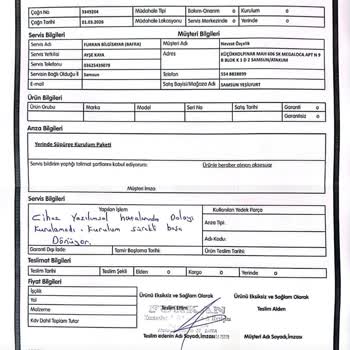 Çağrı No 5349204 Müdahale Tipi Bakım-Onarım o Kurulum o
Çağrı Tarihi 01.03.2026 Müdahale Lokasyonu Servis Merkezinde o Yerinde o
Servis Bilgileri Müşteri Bilgileri
Servis Adı FURKAN BİLGİSAYAR (BAFRA) Müşteri Adı Nevzat Özçelik
Servis Yetkilisi AYŞE KAYA Adres KÜÇÜKKOLPINAR MAH 606 SK MEGALOCA APT N 9
Servis Telefonu 03625435079 B BLOK K 1 D 2 SAMSUN/ATAKUM
Servisin Bağlı Olduğu İl Samsun Telefon 554 8838899
E-mail Satış Bayisi/Mağaza Adı SAMSUN YEŞİLYURT
Ürün Bilgileri
Ürün Grubu Marka Model Seri No Satış Tarihi Garanti o
Garantisiz o
Arıza Bilgileri
Yerinde Süpürge Kurulum Paketi
Servis bildirim yaptığı talimat şartlarını kabul ediyorum: Ürünle beraber alınan aksesuar
Müşteri İmza:
Servis Bilgileri
Yapılan İşlem Kullanılan Yedek Parça
Cihaz Yazılımsal hatalarından Dolayı Arıza Tipi:
Kurulamadı. Kurulum sürekli başa
Dönüyor. Adı-Kodu:
Garanti Dışı İade: Tamir Başlama Tarihi: Ürün Teslim Tarihi:
Teslimat Bilgileri
Teslim Tarihi Teslim Şekli Elden o Kargo o Yerinde o
Fiyat Bilgileri
İşçilik Ürünü Eksiksiz ve Sağlam Olarak Ürünü Eksiksiz ve Sağlam Olarak
Yol Teslim Ettim Teslim Aldım
Malzeme FURKAN
Kdv Dahil Toplam Tutar
Teslim edenin Adı Soyadı,İmzası Müşteri Adı Soyadı,İmzası